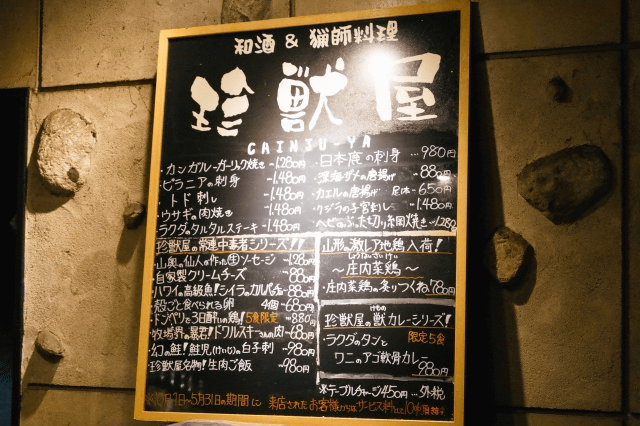 和酒 & 猟師料理
珍獣屋
CHINJU-YA
・カンガルーガーリック焼き -1,280円
・ピラニアの刺身 -1,480円
・トド刺し -1,480円
・ウサギの肉焼き -1,480円
・ラクダのタルタルステーキ -1,480円
・日本鹿の刺身 …980円
・深海ザメの唐揚げ -880円
・カエルの唐揚げ 足体 -650円
・クジラの子宮刺し -1,480円
・ヘビのぶった切り網焼き -1,280
珍獣屋の常連中毒者シリーズ!!
・山奥の仙人が作った生ソーセージ -1,280円
・自家製クリームチーズ -880円
・ハワイの高級魚!シイラのカルパッチョ -880円
・殻ごと食べられる卵 4個 -680円
・ドンペリと3日酔いの鶏! 5食限定 -880円
・牧場界の暴君!ドワルスキーさんの肉 -680円
・幻の鮭!鮭児(けいじ)の白子刺 -980円
・珍獣屋名物!生肉ご飯 -980円
山形の激レア地鶏入荷!
しょうないさいけい
〜庄内菜鶏〜
・庄内菜鶏の炙りつくね 780円
珍獣屋の獣カレーシリーズ!
けもの
・ラクダのタンと 限定5食
ワニのアゴ軟骨カレー
980円
※テーブルチャージ450円…外税
※10月1日〜5月31日の期間に 来店されたお客様からはサービス料として10%頂戴